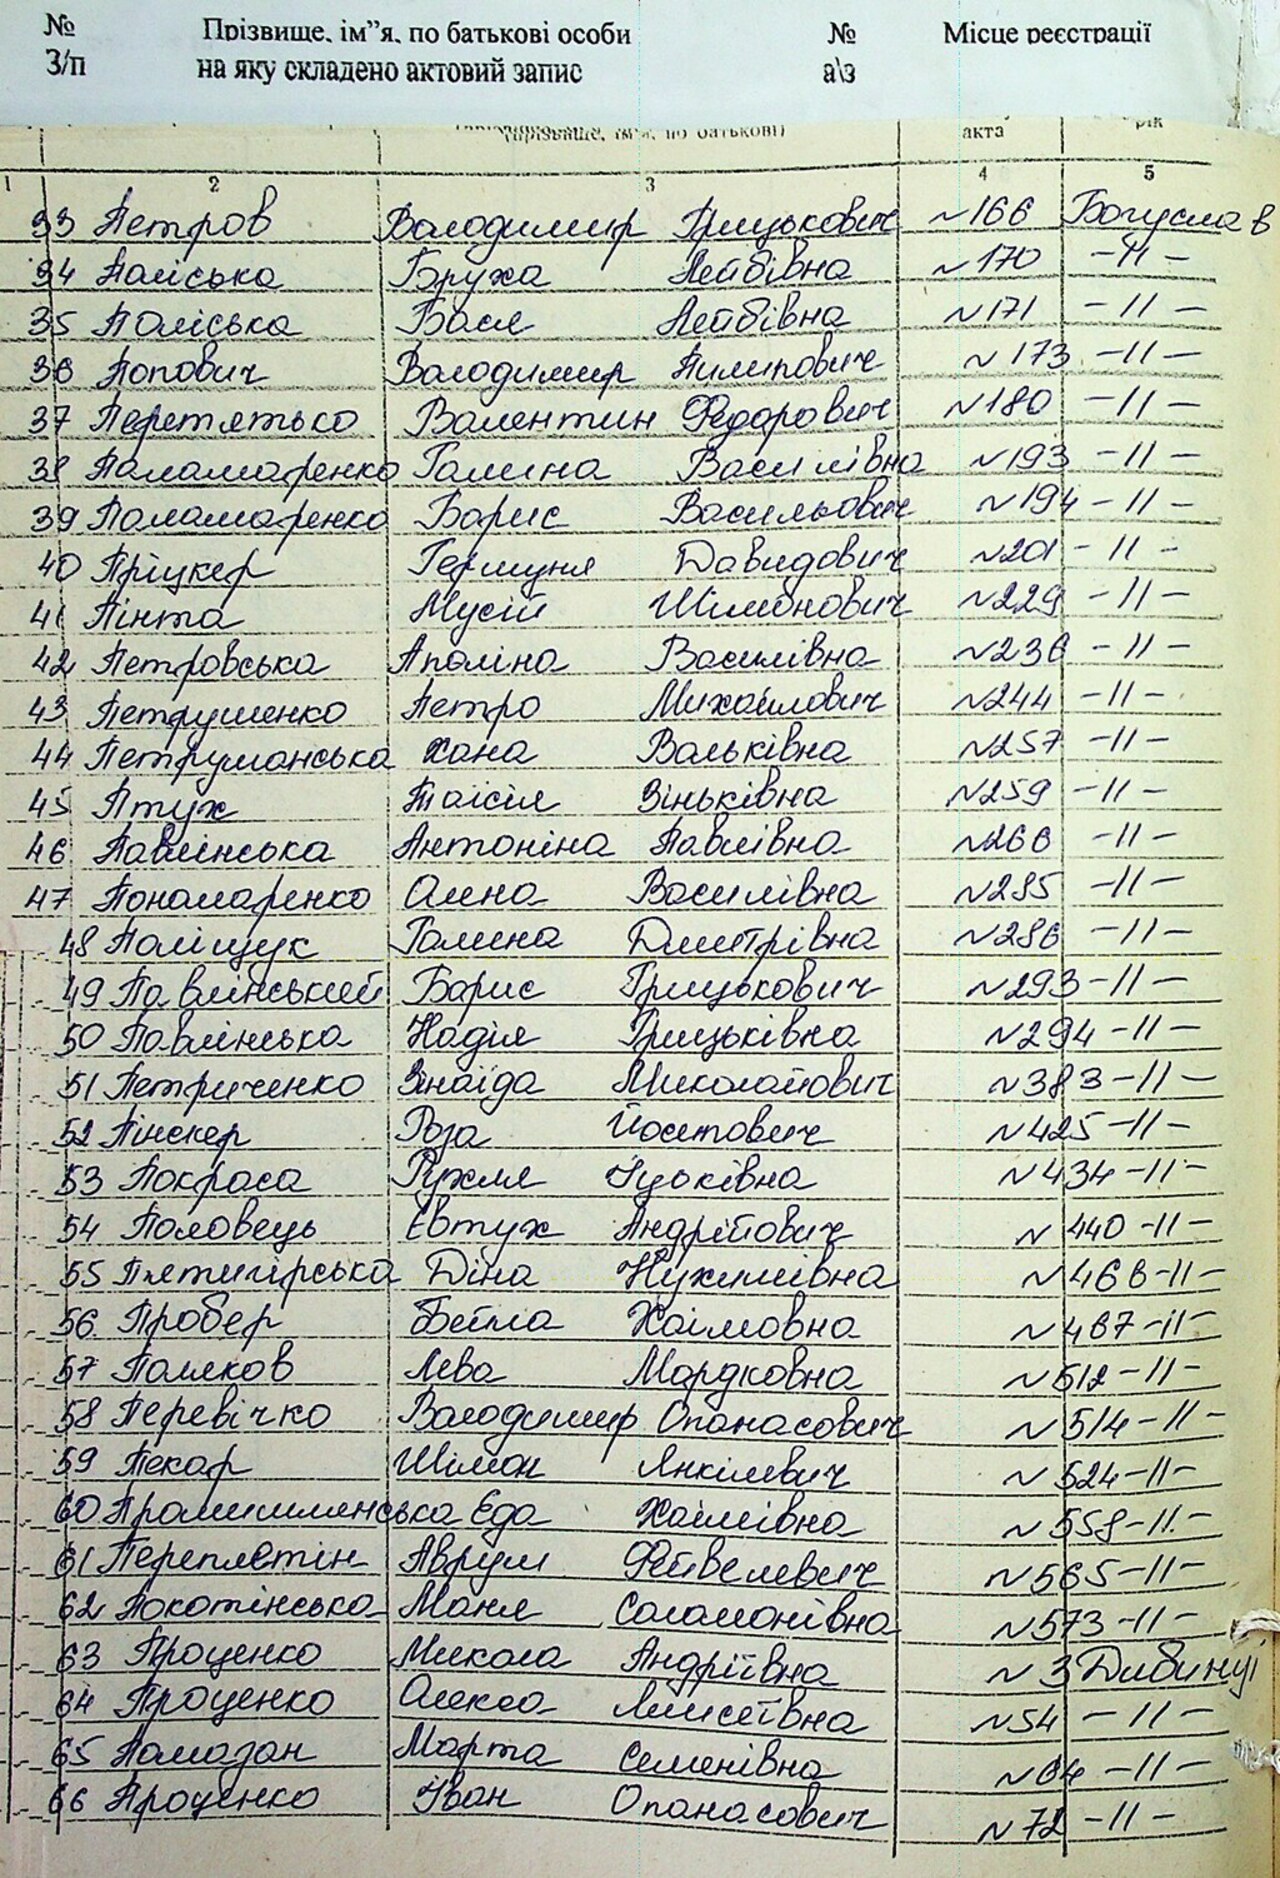 № Прізвище, ім”я, по батькові особи № Місце реєстрації
З/п на яку складено актовий запис а\з
(прізвище, ім'я, по батькові) акта рік
1 2 3 4 5
33 Петров Володимир Грицькович №166 Богуслав
34 Поліська Бруха Лейбівна №170 -11-
35 Поліська Бася Лейбівна №171 -11-
36 Попович Володимир Пилипович №173 -11-
37 Перетятько Валентин Федорович №180 -11-
38 Паламаренко Галина Василівна №193 -11-
39 Паламаренко Борис Васильович №194 -11-
40 Пріцкер Гершуня Давидович №201 -11-
41 Пінта Мусій Шімонович №229 -11-
42 Петровська Аполіна Василівна №236 -11-
43 Петрушенко Петро Михайлович №244 -11-
44 Петрушанська Хана Вольківна №257 -11-
45 Птух Таісія Зіньківна №259 -11-
46 Павлінська Антоніна Павлівна №266 -11-
47 Пономаренко Олена Василівна №285 -11-
48 Поліщук Галина Дмитрівна №286 -11-
49 Павлінський Борис Грицькович №293 -11-
50 Павлінська Надія Грицьківна №294 -11-
51 Петриченко Зінаїда Миколайович №383 -11-
52 Пінскер Роза Йосипович №425 -11-
53 Покраса Рухля Іцьківна №434 -11-
54 Половець Євтух Андрійович №440 -11-
55 Пʼятигірська Діна Нухимівна №466 -11-
56 Пробер Бейла Хаімовна №467 -11-
57 Поляков Лева Мордковна №512 -11-
58 Перевічко Володимир Опанасович №514 -11-
59 Пекар Шімон Янкілевич №524 -11-
60 Промишлянська Еда Хаімівна №558 -11-
61 Переплетін Аврум Фейвелевич №565 -11-
62 Покотінська Маня Соломонівна №573 -11-
63 Проценко Микола Андріївна №3 Дибинці
64 Проценко Олекса №54 -11-
65 Помазан Марта Семенівна №64 -11-
66 Проценко Іван Опанасович №72 -11-